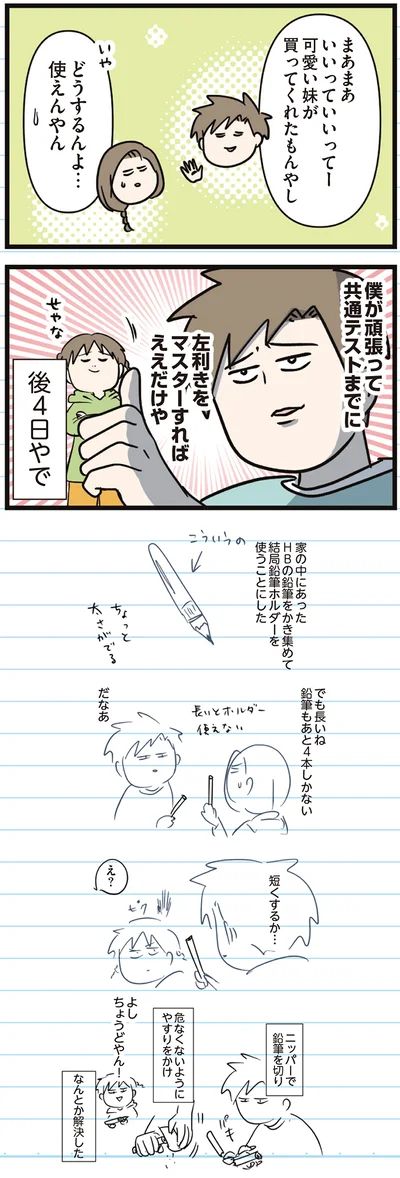 まあまあ
いいっていいってー
可愛い妹が
買ってくれたもんやし
いや
どうするんよ…
使えんやん
僕が頑張って
共通テストまでに
左利きを
マスターすれば
ええだけや
せやな
後4日やで
家の中にあった
HBの鉛筆をかき集めて
結局鉛筆ホルダーを
使うことにした
こういうの
ちょっと
太さがでる
でも長いね
鉛筆もあと4本しかない
長いとホルダー
使えない
だなあ
短くするか…
え？
ピク
ニッパーで
鉛筆を切り
危なくないように
やすりをかけ
よし
ちょうどやん！
なんとか解決した